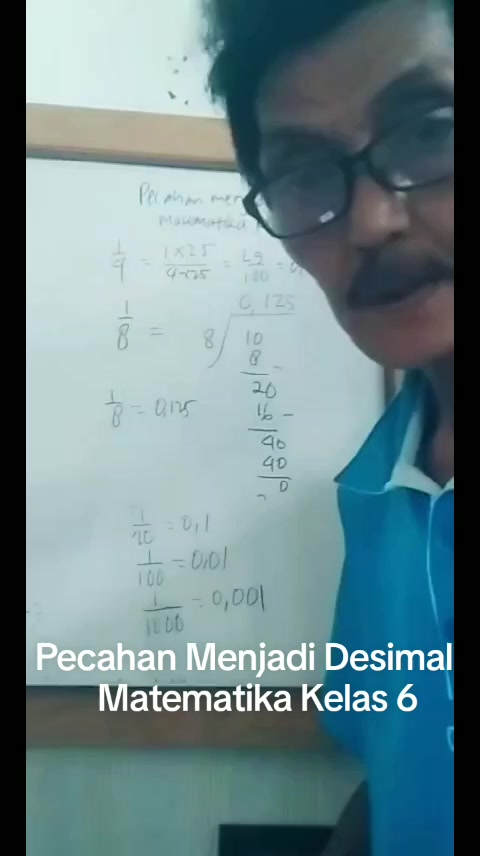 Pecahan men
Matematika
1/4 = 1x25/4x25 = 25/100 = 0,
1/8 = 8 0,125
10
8 -
20
16 -
40
40
0
1/8 = 0,125
1/10 = 0,1
1/100 = 0,01
1/1000 = 0,001
Pecahan Menjadi Desimal
Matematika Kelas 6